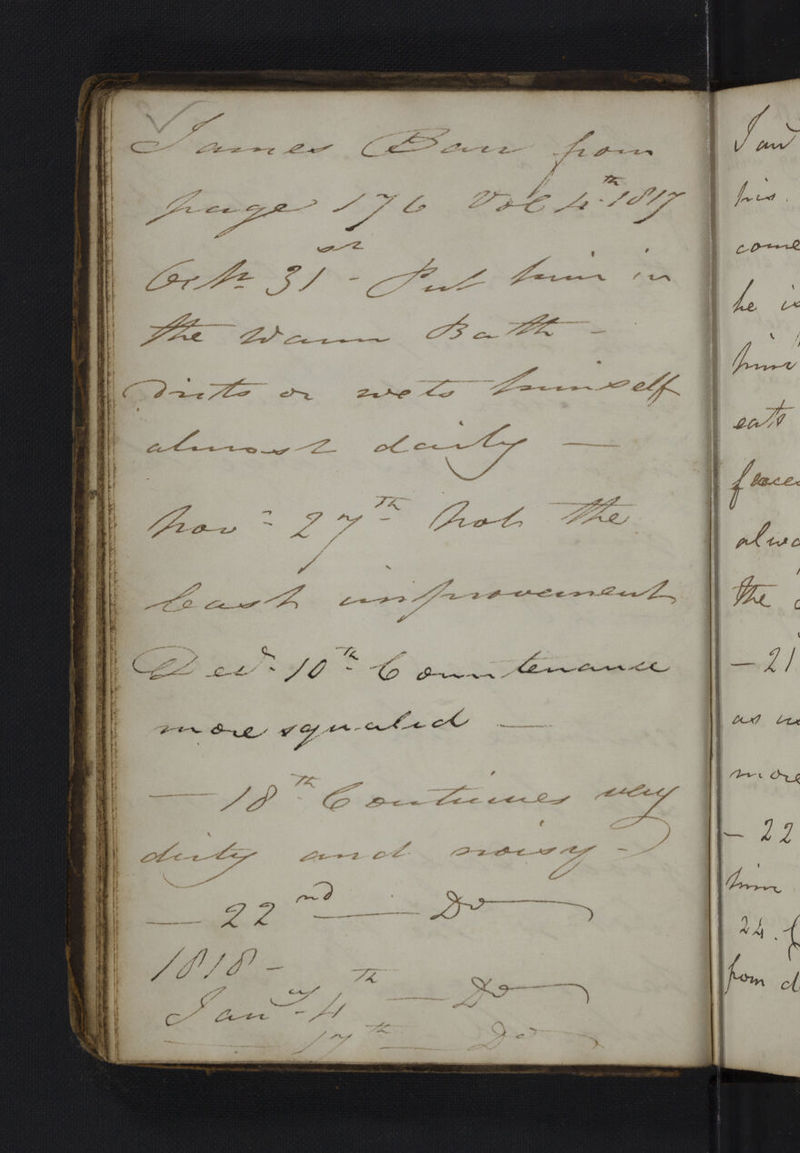 James Barr from
page 176 Vol 4th. 1817
Octr 31st - Put him in
the warm Bath -
Dirts or wets himself
almost daily —
Novr 27th Not the
least improvement
Decr. 10th Countenance
more squalid —
— 18th Continues very
dirty and noisy -
— 22nd — Do —
1818 -
Jany 4th — Do —
— 17th — Do —
Jan
his.
come
he is
him
eats
faces
the
— 21
as
more
— 22
him
24.
from d